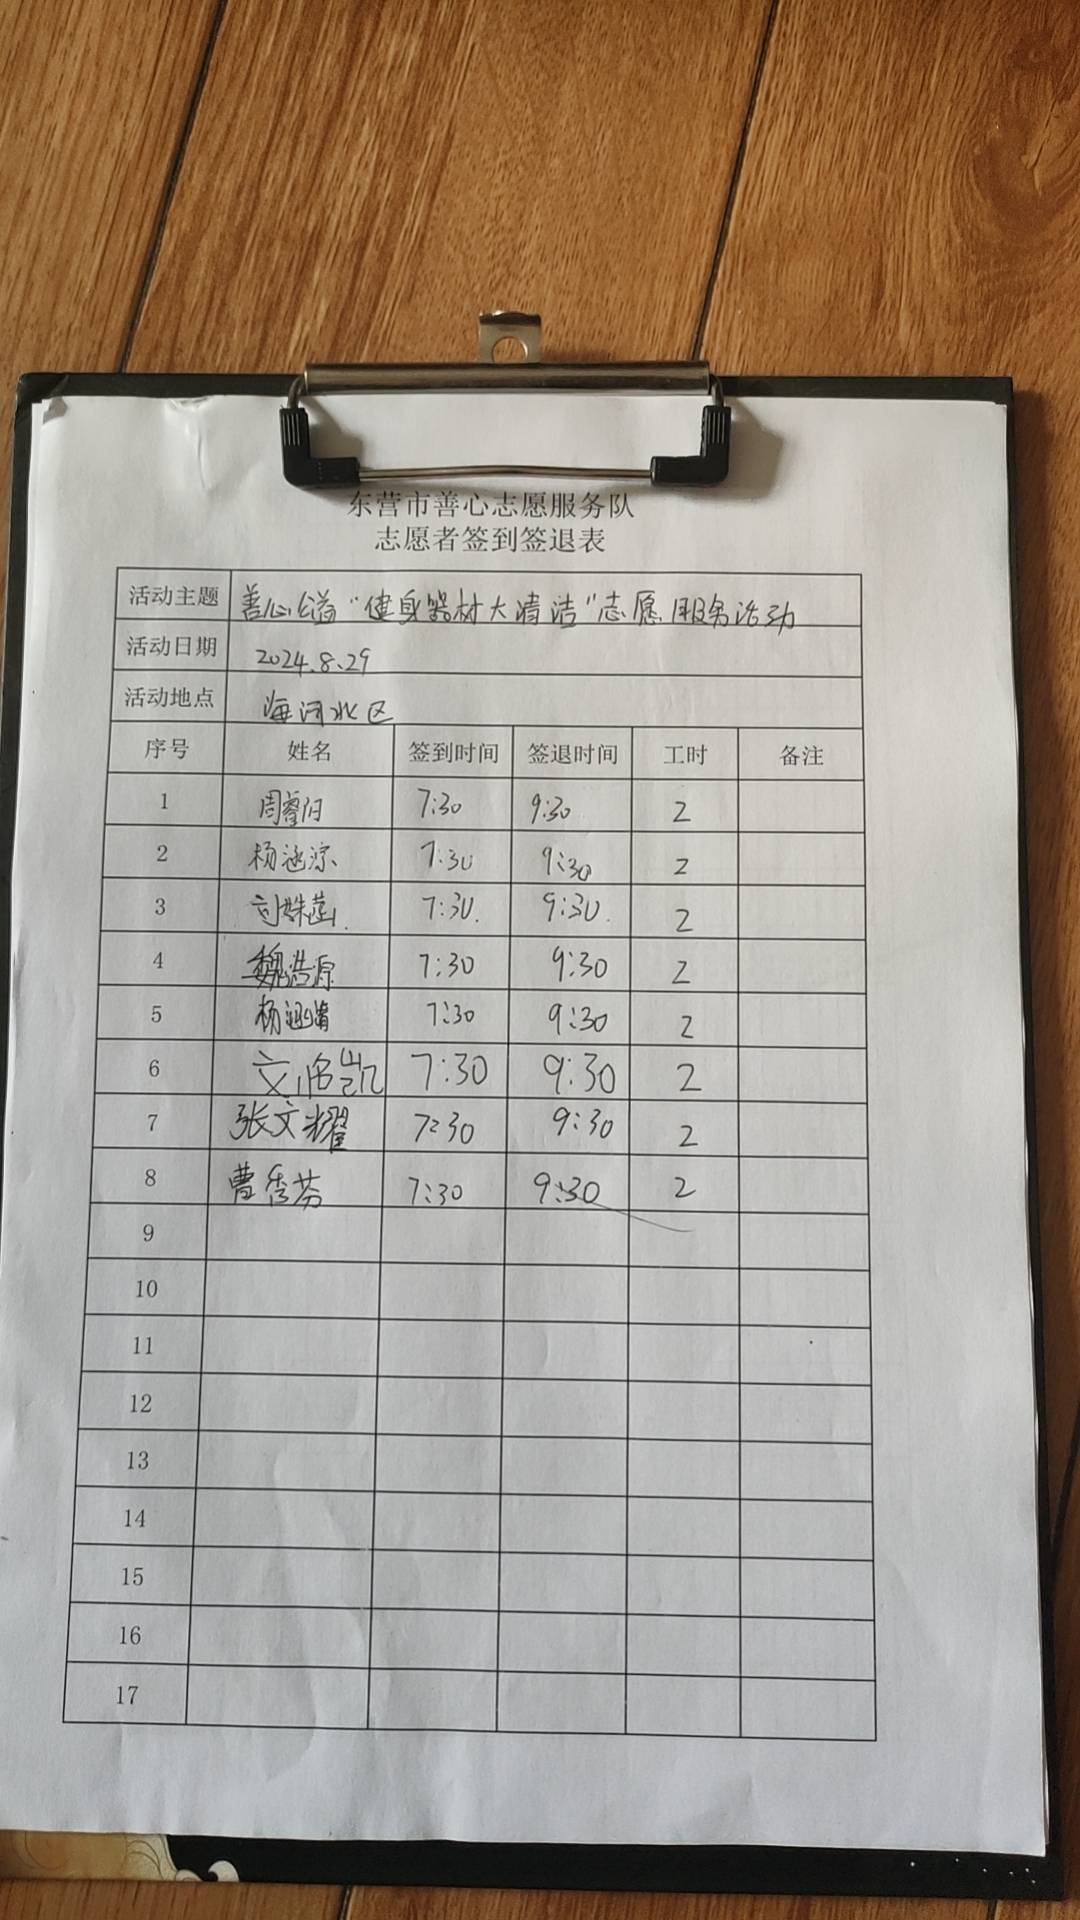 东营市善心志愿服务队
志愿者签到签退表
活动主题 善心公益“健身器材大清洁”志愿服务活动
活动日期 2024.8.29
活动地点 海河北区
序号 姓名 签到时间 签退时间 工时 备注
1 周睿阳 7:30 9:30 2
2 杨涵淙 7:30 9:30 2
3 刘姝菡 7:30. 9:30. 2
4 魏浩源 7:30 9:30 2
5 杨涵 7:30 9:30 2
6 文 凯 7:30 9:30 2
7 张文耀 7:30 9:30 2
8 曹秀芬 7:30 9:30 2
9
10
11
12
13
14
15
16
17